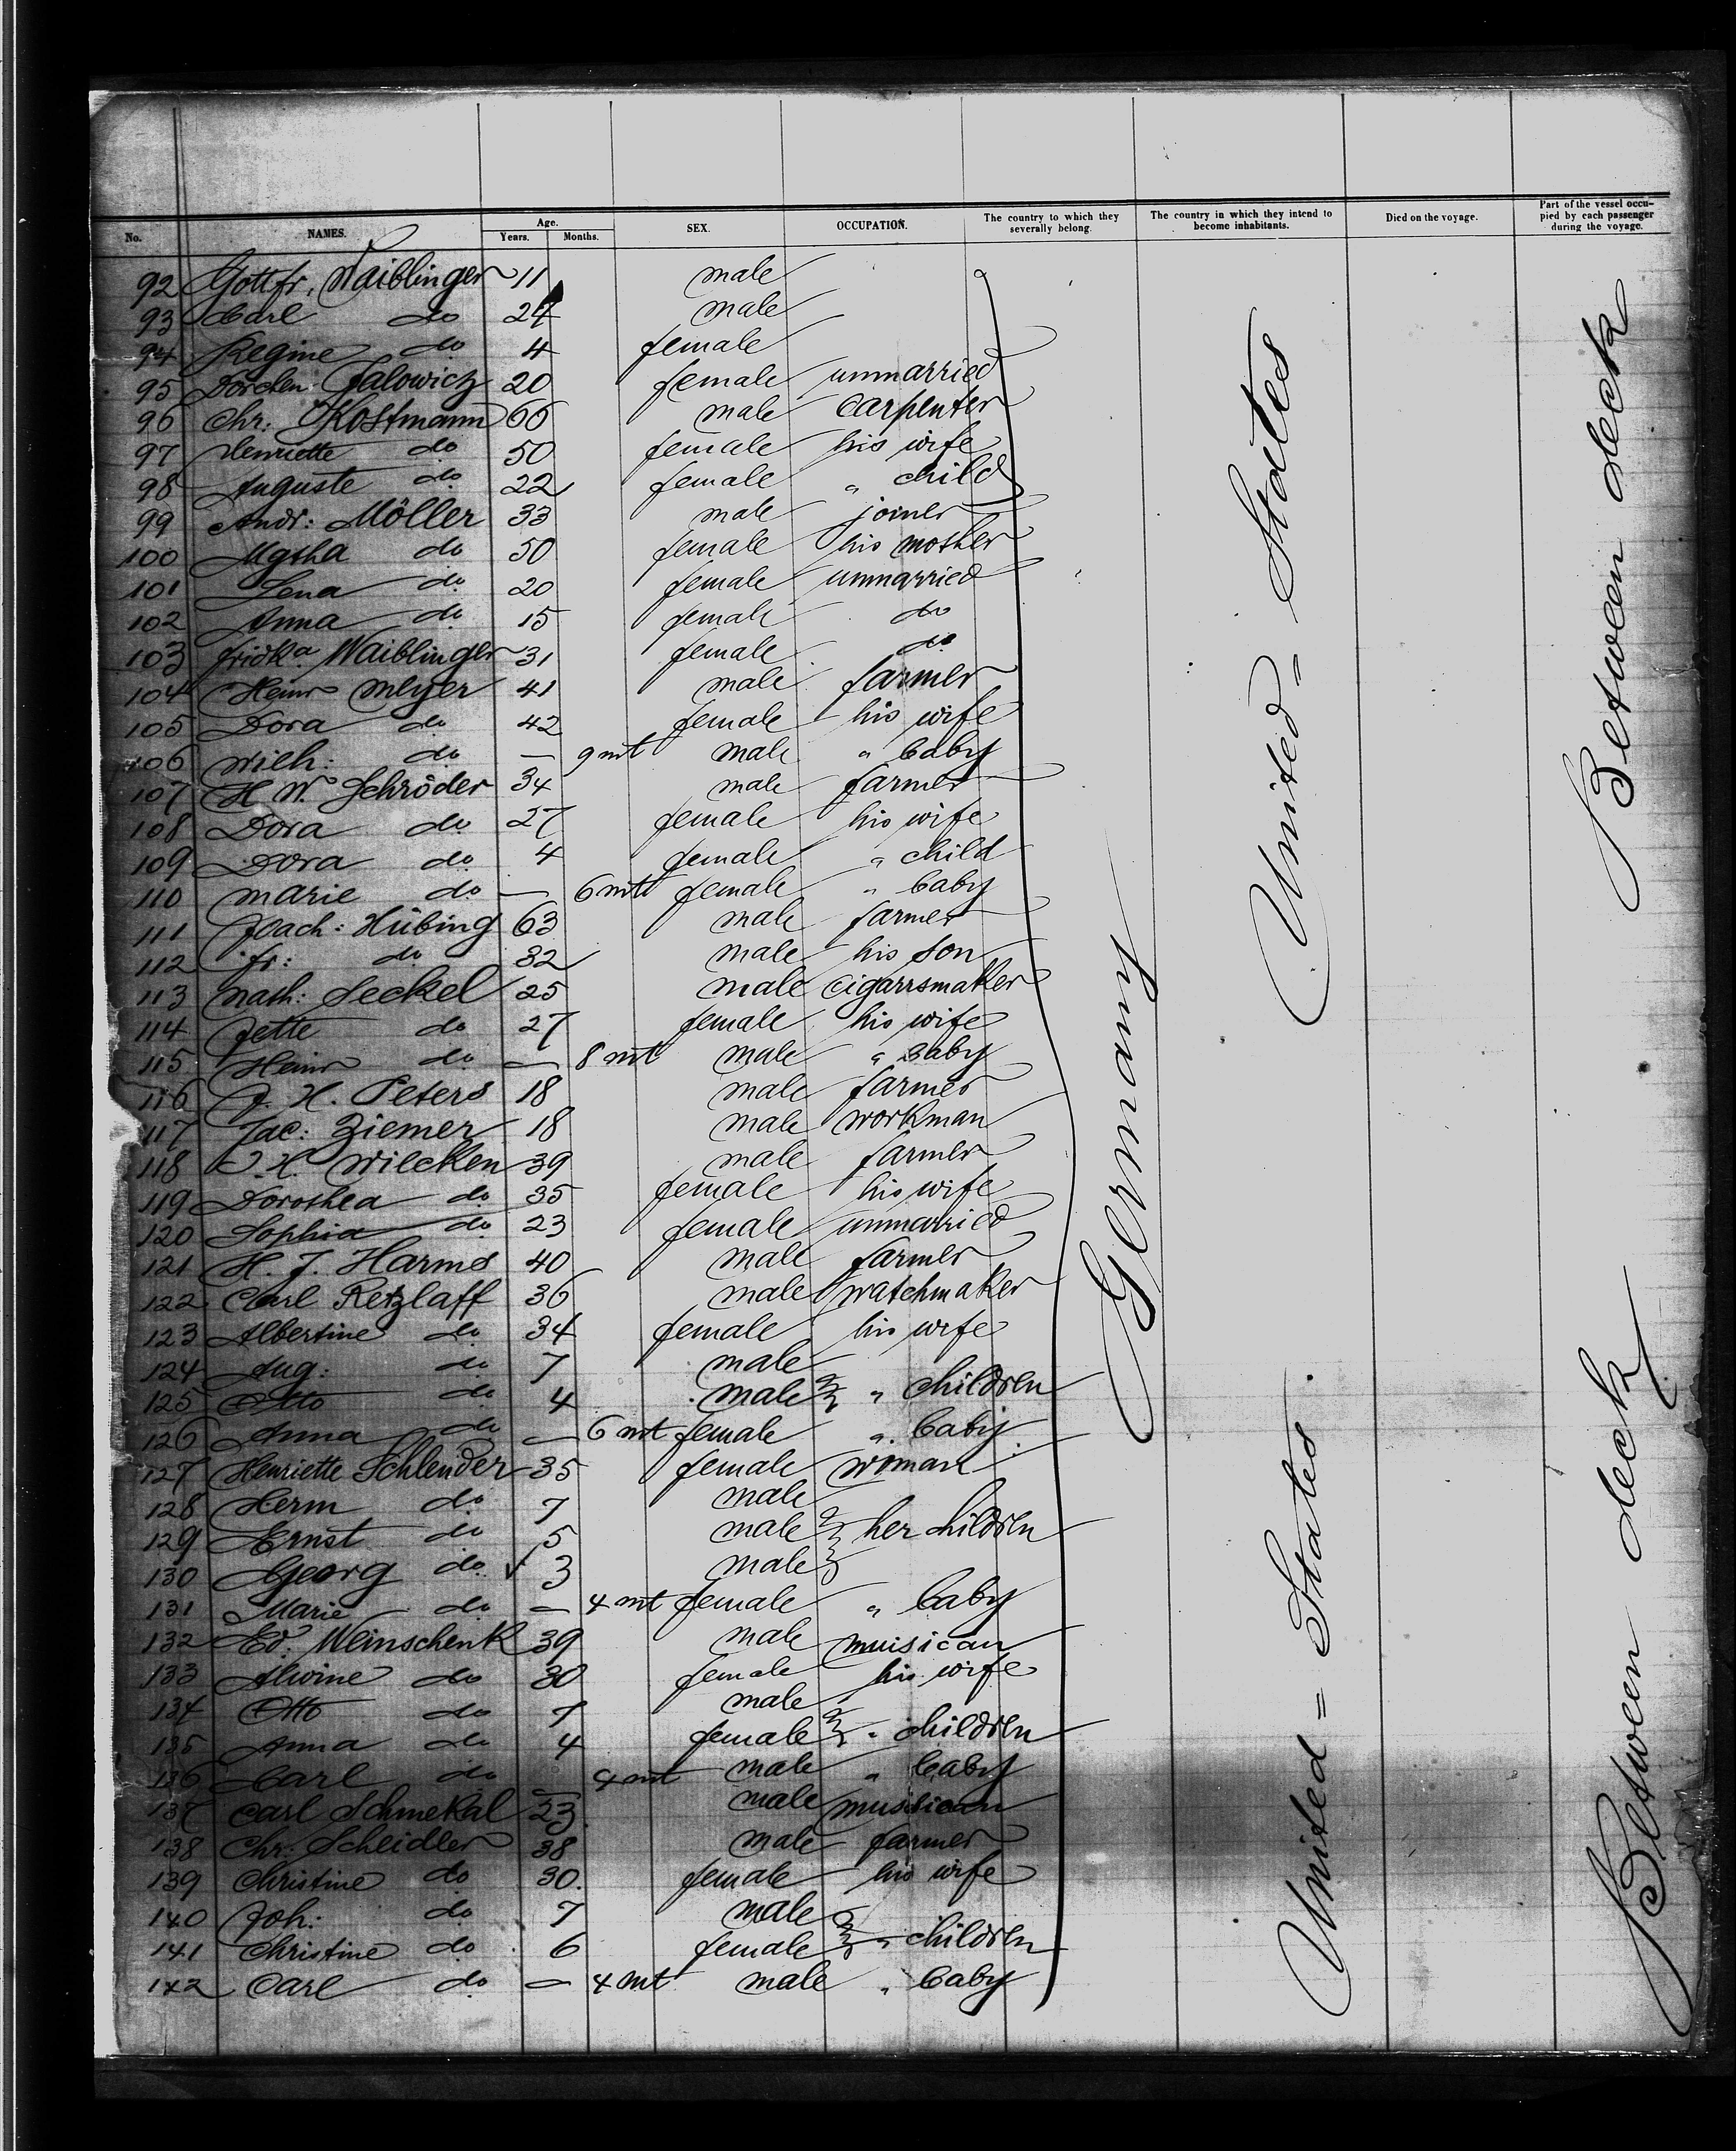 No. NAMES. Age. Years. Months. SEX. OCCUPATION. The country to which they severally belong. The country in which they intend to become inhabitants. Died on the voyage. Part of the vessel occupied by each passenger during the voyage.
92 Gottfr. Waiblinger 11 male
93 Carl do 24 male
94 Regine do 4 female
95 Dorchen Jalowicz 20 female unmarried
96 Chr: Kostmann 66 male carpenter
97 Henriette do 50 female his wife
98 Auguste do 22 female " child
99 Andr: Möller 33 male joiner
100 Mgtha do 50 female his mother
101 Lena do 20 female unmarried
102 Anna do 15 female do
103 Fridka Waiblinger 31 female do
104 Heinr Meyer 41 male farmer
105 Dora do 42 female his wife
106 Wilh: do — 9 mt male " baby
107 H. W. Schröder 34 male farmer
108 Dora do 27 female his wife
109 Dora do 4 female " child
110 Marie do — 6 mt female " baby
111 Joach: Hübing 63 male farmer
112 Fr: do 32 male his son
113 Nath: Seckel 25 male cigarrsmaker
114 Jette do 27 female his wife
115 Heinr do — 8 mt male " baby
116 J. H. Peters 18 male farmer
117 Jac: Ziemer 18 male workman
118 J. H. Wilcken 39 male farmer
119 Dorothea do 35 female his wife
120 Sophia do 23 female unmarried
121 H. J. Harms 40 male farmer
122 Carl Retzlaff 36 male watchmaker
123 Albertine do 34 female his wife
124 Aug: do 7 male
125 Otto do 4 male " children
126 Anna do — 6 mt female " baby
127 Henriette Schlender 35 female woman
128 Herm do 7 male
129 Ernst do 5 male her children
130 Georg do 3 male
131 Marie do — 4 mt female " baby
132 Ed. Weinschenk 39 male muisican
133 Alwine do 30 female his wife
134 Otto do 7 male
135 Anna do 4 female " children
136 Carl do 4 mt male " baby
137 Carl Schmekal 23 male musican
138 Chr: Scheidler 38 male farmer
139 Christine do 30 female his wife
140 Joh: do 7 male
141 Christine do 6 female " children
142 Carl do — 4 mt male " baby
Germany
United = States
United = States
Between deck
Between deck